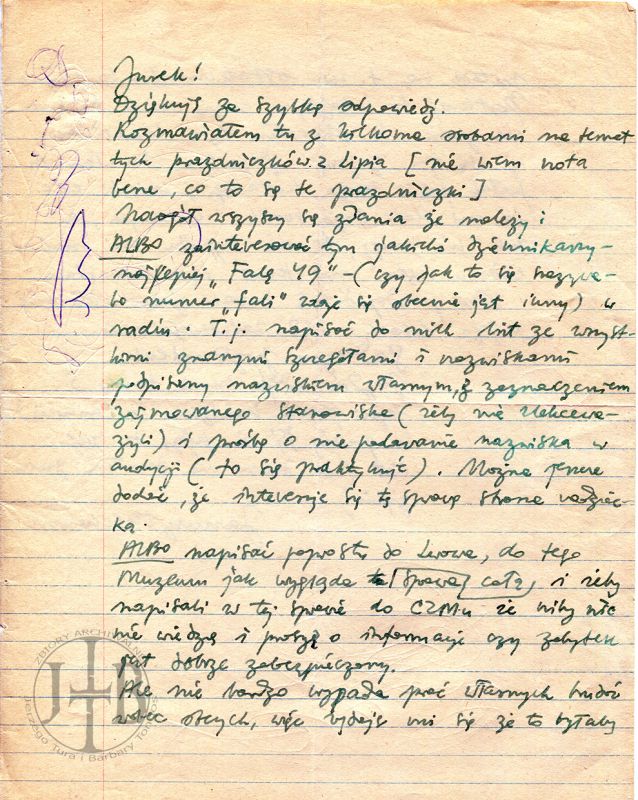 Jurek!
Dziękuję za szybką odpowiedź.
Rozmawiałem tu z kilkoma osobami na temat
tych prazdniczków z Lipia [nie wiem nota
bene, co to są te prazdniczki]
Naogół wszyscy są zdania że należy i
ALBO zainteresować tym jakichś dziennikarzy -
najlepiej „Falę 49” - (czy jak to się nazywa -
bo numer „fali” zdaje się obecnie jest inny) w
radiu. T.j. napisać do nich list ze wszyst-
kimi znanymi szczegółami i nazwiskami
podpisany nazwiskiem własnym, z zaznaczeniem
zajmowanego stanowiska (żeby nie zlekcewa-
żyli) i prośbę o nie podawanie nazwiska w
audycji (to się praktykuje). Można jeszcze
dodać, że interesuje się tą sprawą strona radziec-
ka.
ALBO napisać poprostu do Lwowa, do tego
Muzeum jak wygląda ta [sprawa] cała, i żeby
napisali w tej sprawie do CZMu że niby nic
nie wiedzą i proszą o informacje czy zabytek
jest dobrze zabezpieczony.
Ale nie bardzo wypada prać własnych brudów
wobec obcych, więc wydaje mi się że to byłaby
ZBIORY ARCHIWALNE
JTB
Jerzego Tura i Barbary